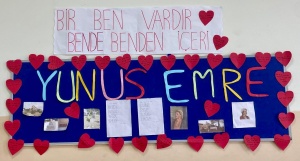 BIR BEN VARDIR
BENDE BENDEN İÇERİ
YUNUS EMRE